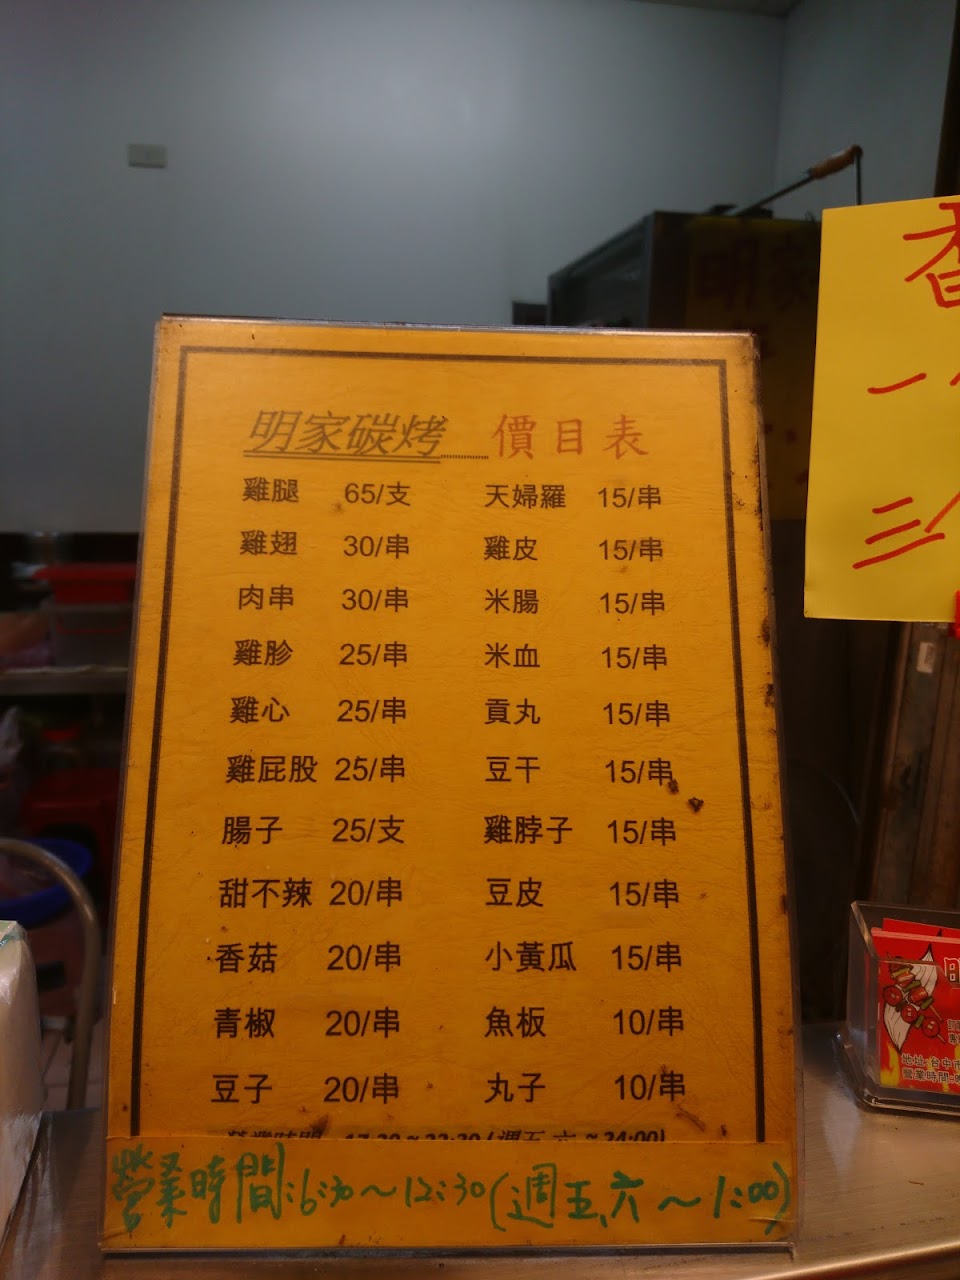 明家碳烤 價目表
雞腿 65/支 天婦羅 15/串
雞翅 30/串 雞皮 15/串
肉串 30/串 米腸 15/串
雞胗 25/串 米血 15/串
雞心 25/串 貢丸 15/串
雞屁股 25/串 豆干 15/串
腸子 25/支 雞脖子 15/串
甜不辣 20/串 豆皮 15/串
香菇 20/串 小黃瓜 15/串
青椒 20/串 魚板 10/串
豆子 20/串 丸子 10/串
營業時間:6:30~12:30(週五、六~1:00)
香
一
三
明
地址:台中市
營業時間